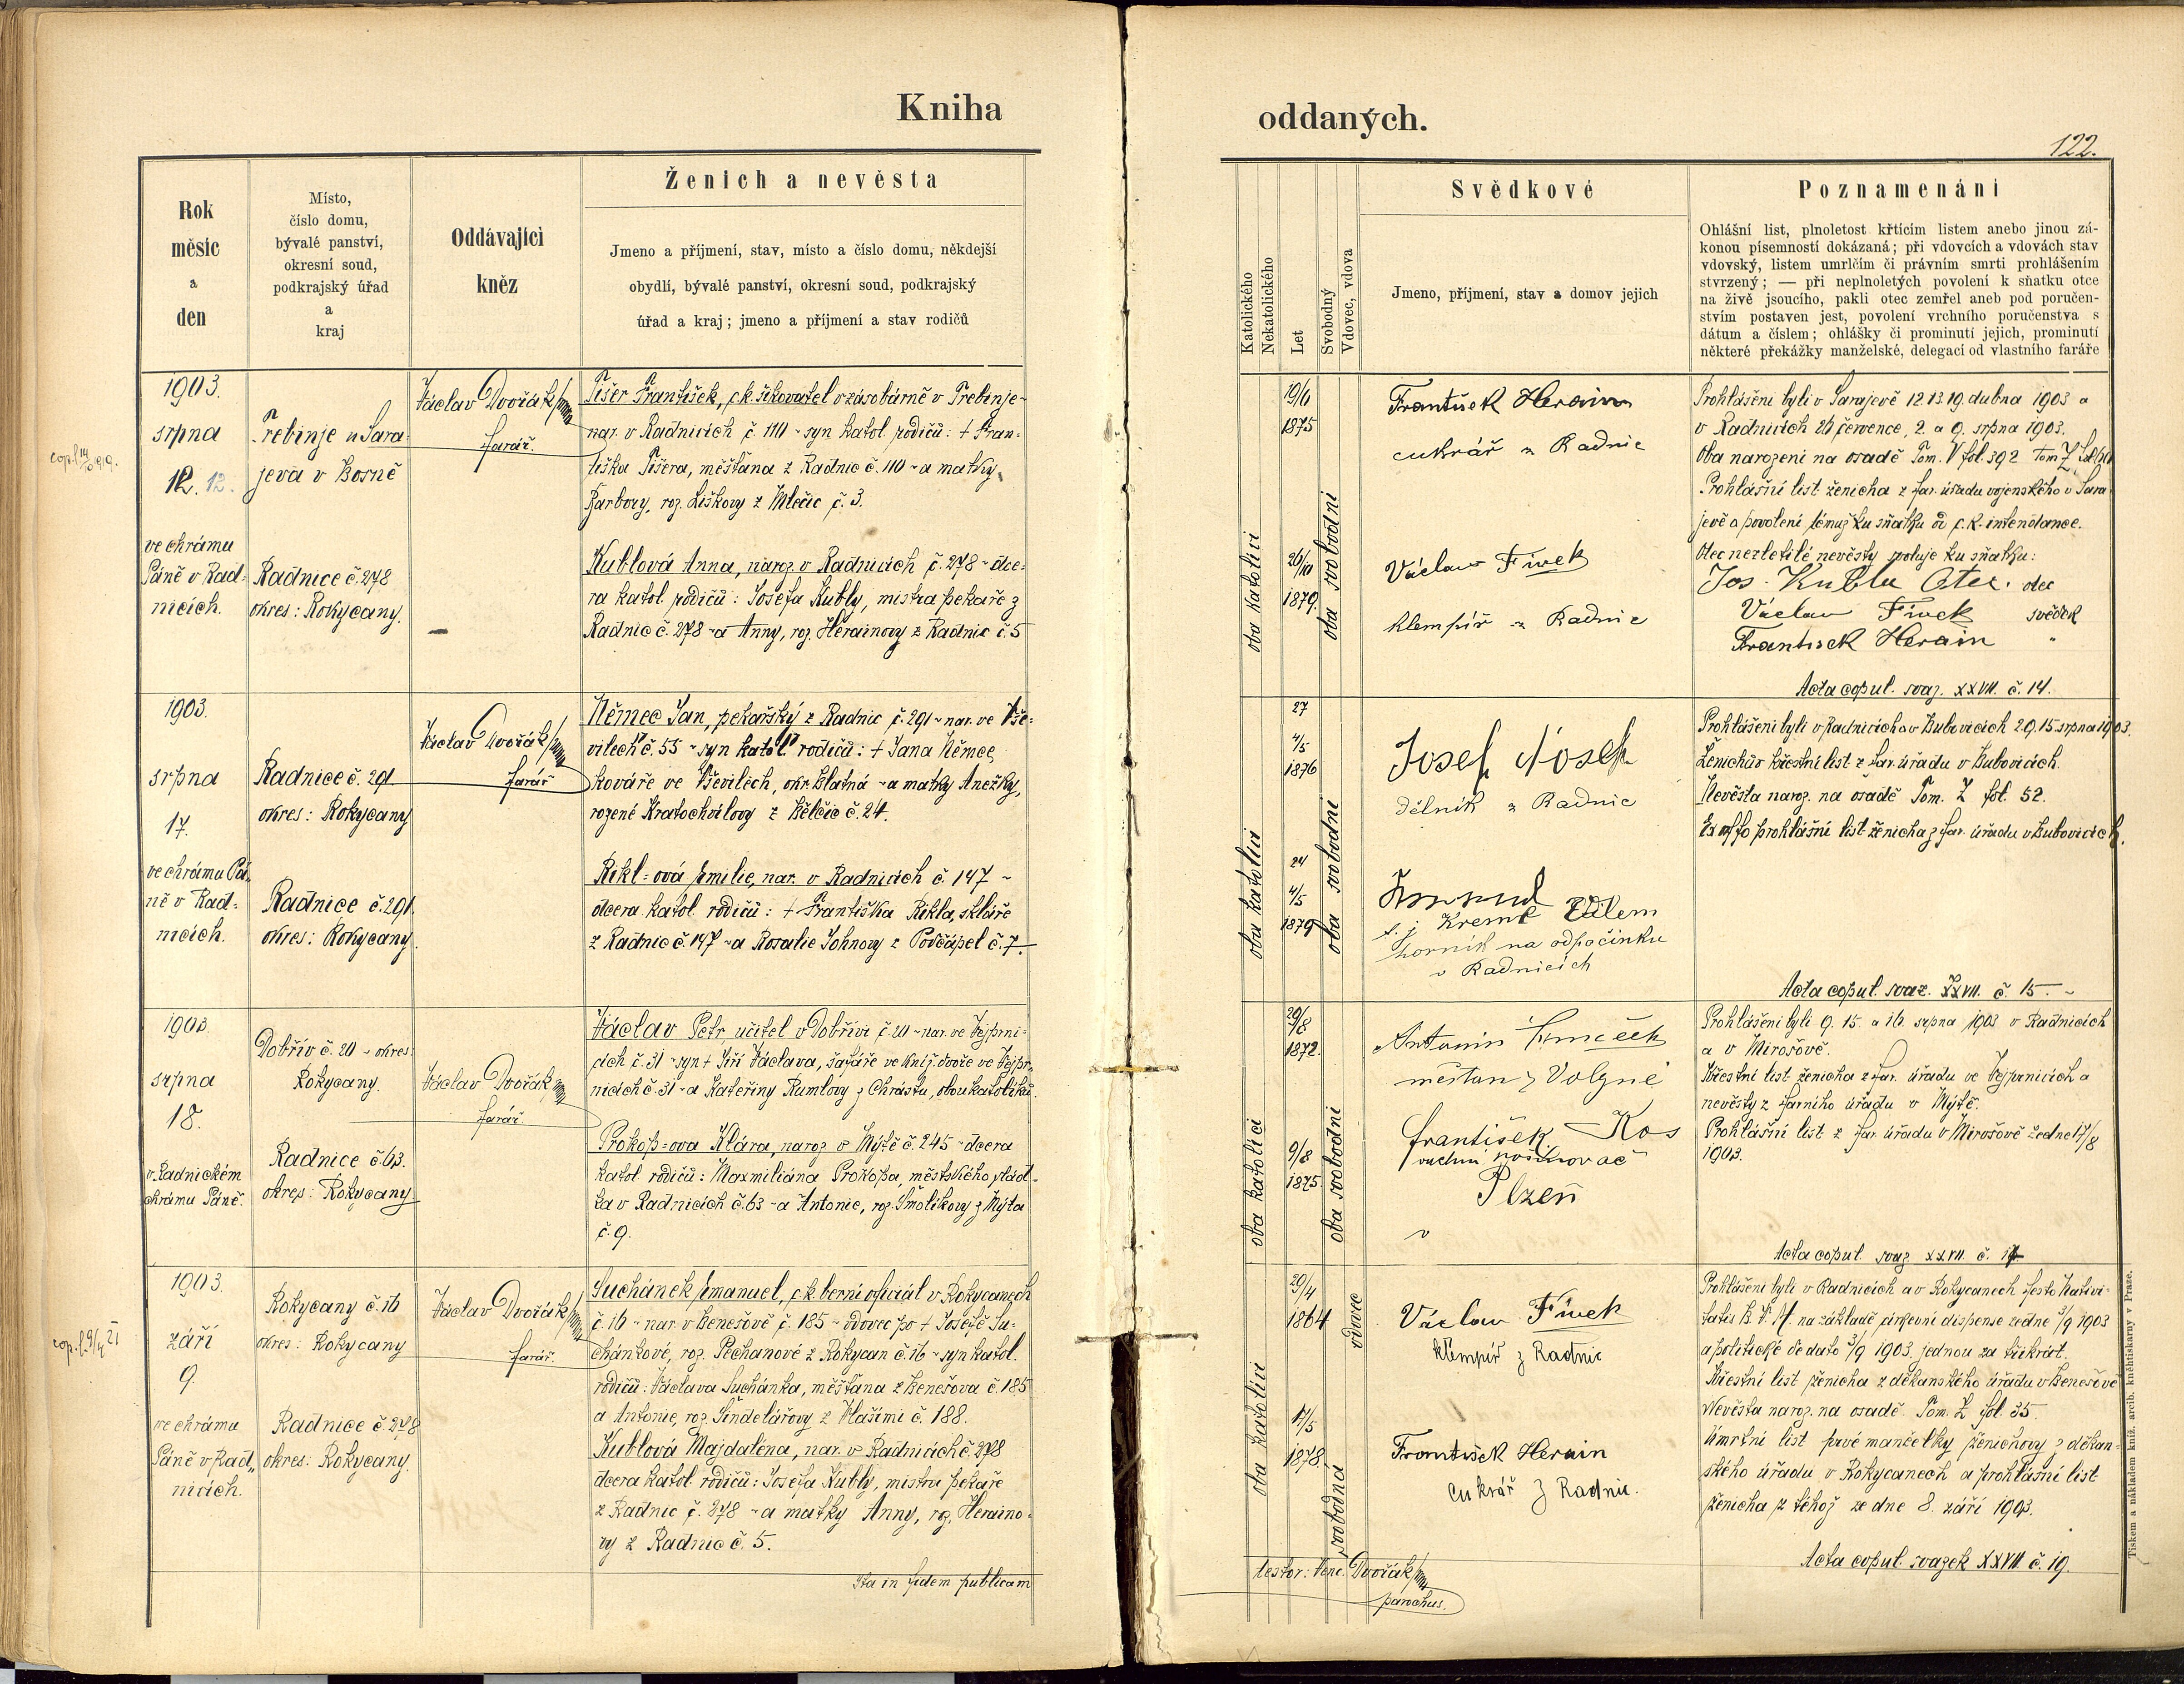 Kniha
oddaných.
122.
Rok
měsíc
a
den
Místo,
číslo domu,
bývalé panství,
okresní soud,
podkrajský úřad
a
kraj
Oddávající
kněz
Ženich a nevěsta
Jmeno a příjmení, stav, místo a číslo domu, někdejší
obydlí, bývalé panství, okresní soud, podkrajský
úřad a kraj; jmeno a příjmení a stav rodičů
Katolického
Nekatolického
Let
Svobodný
Vdovec, vdova
Svědkové
Jmeno, příjmení, stav a domov jejich
Poznamenání
Ohlášní list, plnoletost křtícím listem anebo jinou zá-
konou písemností dokázaná; při vdovcích a vdovách stav
vdovský, listem umrlčím či právním smrti prohlášením
stvrzený; — při neplnoletých povolení k sňatku otce
na živě jsoucího, pakli otec zemřel aneb pod poručen-
stvím postaven jest, povolení vrchního poručenstva s
dátum a číslem; ohlášky či prominutí jejich, prominutí
některé překážky manželské, delegací od vlastního faráře
1903.
srpna
12.
ve chrámu
Páně v Rad-
nicích.
Trebinje u Sara-
jeva v Bosně
Radnice č. 278
okres: Rokycany.
Václav Dvořák
farář.
Tišer František, c.k. šikovatel v zásobárně v Trebinje-
nar. v Radnicích č. 110 - syn katol. rodičů: † Fran-
tiška Tišera, měšťana z Radnic č. 110 - a matky
Barbory, roz. Liškovy z Mlečic č. 3.
Kublová Anna, naroz. v Radnicích č. 278 - dce-
ra katol. rodičů: Josefa Kubly, mistra pekaře z
Radnic č. 278 - a Anny, roz. Herainovy z Radnic č. 5
oba katolíci
19/6
1875
26/10
1879.
oba svobodní
František Herain
cukrář z Radnic
Václav Fiwek
klempíř z Radnic
Prohlášeni byli v Sarajevě 12. 13. 19. dubna 1903 a
v Radnicích 26 července, 2. a 9. srpna 1903.
Oba narozeni na osadě Tom. V fol. 392 Tom Z
Prohlášní list ženicha z far. úřadu vojenského v Sara-
jevě a povolení témuž ku sňatku od c.k. intendance.
Otec nezletilé nevěsty svoluje ku sňatku:
Jos. Kubla Otec. otec
Václav Fiwek svědek
František Herain "
Acta copul. svaz. XXVII. č. 14.
1903.
srpna
17.
ve chrámu Pá-
ně v Rad-
nicích.
Radnice č. 291
okres: Rokycany
Radnice č. 291.
okres: Rokycany.
Václav Dvořák
farář
Němec Jan, pekařský z Radnic č. 291 - nar. ve Vše-
vilech č. 55 - syn katol. rodičů: † Jana Němce,
kováře ve Vševilech, okr. Blatná - a matky Anežky,
rozené Kratochvilovy z Bělčic č. 24.
Rikl=ová Emilie, nar. v Radnicích č. 147 -
dcera katol. rodičů: † Františka Rikla, skláře
z Radnic č. 147 - a Rosalie Johnovy z Podčápel č. 7.
oba katolíci
27
4/5
1876
24
4/5
1879
oba svobodní
Josef Nosek
dělník z Radnic
t. j. Kreml Vilém
horník na odpočinku
v Radnicích
Prohlášeni byli v Radnicích a v Bubovicích 2. 9. 15. srpna 1903.
Ženichův křestní list z far. úřadu v Bubovicích.
Nevěsta naroz. na osadě Tom. Z fol. 52.
Ex offo prohlášní list ženicha z far. úřadu v Bubovicích.
Acta copul. svaz. XXVII. č. 15.
1903
srpna
18.
v Radnickém
chrámu Páně.
Dobřív č. 20 - okres:
Rokycany.
Radnice č. 63.
okres: Rokycany
Václav Dvořák
farář.
Václav Petr, učitel v Dobřívi č. 20 - nar. ve Vejprni-
cích č. 31 - syn † Jiří Václava, šafáře ve kníž. dvoře ve Vejpr-
nicích č. 31 - a Kateřiny Rumlovy z Chrástu, obou katolíků.
Prokop=ova Klára, naroz. v Mýtě č. 245 - dcera
katol. rodičů: Maxmiliána Prokopa, městského
ka v Radnicích č. 63 - a Antonie, roz. Smolíkovy z Mýta
č. 9.
oba katolíci
29/8
1872.
9/8
1875.
oba svobodní
Antonín
měšťan z Volyně
František Kos
Plzeň
Prohlášeni byli 9. 15. a 16. srpna 1903 v Radnicích
a v Mirošově.
Křestní list ženicha z far. úřadu ve Vejprnicích a
nevěsty z farního úřadu v Mýtě.
Prohlášní list z far. úřadu v Mirošově ze dne 17/8
1903.
Acta copul. svaz. XXVII. č. 17
1903.
září
9.
ve chrámu
Páně v Rad-
nicích.
Rokycany č. 16
okres: Rokycany
Radnice č. 278
okres: Rokycany.
Václav Dvořák
farář.
Suchánek Emanuel, c.k. berní oficiál v Rokycanech
č. 16 - nar. v Benešově č. 185 - vdovec po † Josefě Su-
chánkové, roz. Pechanové z Rokycan č. 16 - syn katol.
rodičů: Václava Suchánka, měšťana z Benešova č. 185
a Antonie, roz. Šindelářovy z Vlašimi č. 188.
Kublová Majdaléna, nar. v Radnicích č. 278
dcera katol. rodičů: Josefa Kubly, mistra pekaře
z Radnic č. 278 - a matky Anny, roz. Heraino-
vy z Radnic č. 5.
Ita in fidem publicam
oba katolíci
29/4
1864
17/5
1878.
vdovec
svobodná
Václav Fiwek
klempíř z Radnic
František Herain
cukrář z Radnic.
Prohlášeni byli v Radnicích a v Rokycanech festo Nativi-
tatis B. V. M. na základě církevní dispense ze dne 5/9 1903
a politické de dato 3/9 1903. jednou za třikrát.
Křestní list ženicha z děkanského úřadu v Benešově
Nevěsta naroz. na osadě. Tom. Z fol. 35.
Úmrtní list prvé manželky ženichovy z děkan-
ského úřadu v Rokycanech a prohlášní list
ženicha z téhož ze dne 8. září 1903.
Acta copul. svazek XXVII. č. 19.
testor: Venc. Dvořák
parochus.
Tiskem a nákladem kníž. arcib. knihtiskárny v Praze.